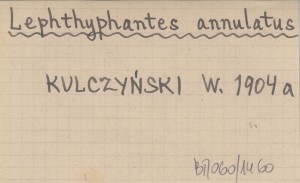 Lephthyphantes annulatus
KULCZYŃSKI W. 1904a
BP/060/1460